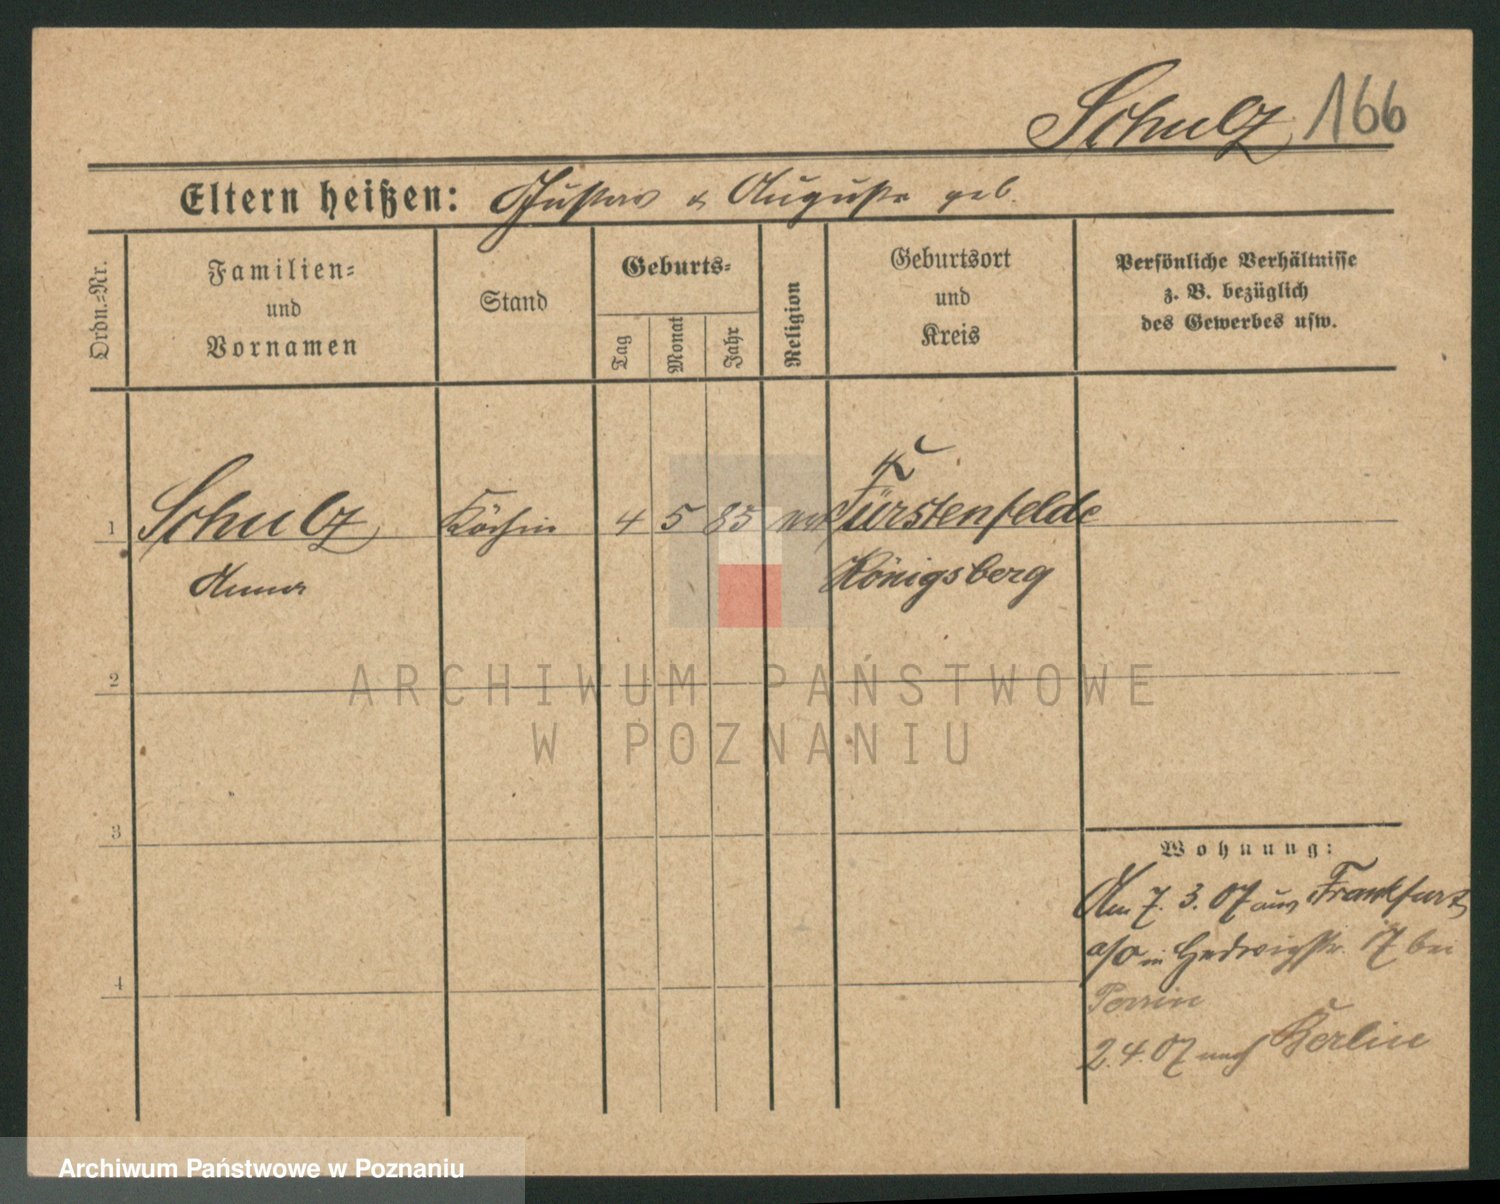 Schulz 166
Eltern heißen: Gustav & Auguste geb.
Ordn.=Nr.
Familien=
und
Vornamen
Stand
Geburts=
Tag
Monat
Jahr
Religion
Geburtsort
und
Kreis
Persönliche Verhältnisse
z. B. bezüglich
des Gewerbes usw.
1 Schulz Köchin 4 5 85 Fürstenfelde
Anna Königsberg
2
3
4
Wohnung:
Am 7. 3. 07 aus Frankfurt
a/O in Hedwigstr. 17 bei
Perrin
2. 4. 07 nach Berlin
ARCHIWUM PAŃSTWOWE
W POZNANIU
Archiwum Państwowe w Poznaniu